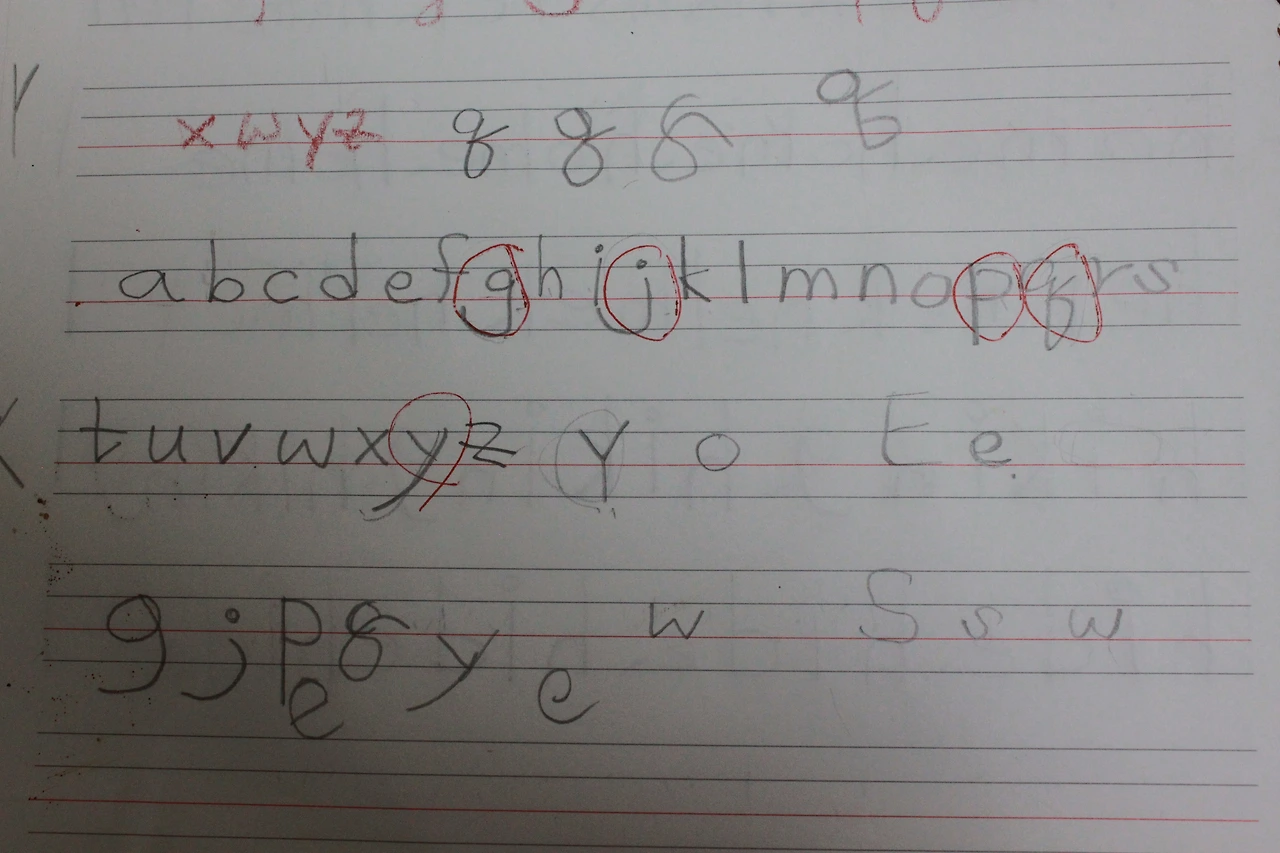 x w y z q q q q
a b c d e f g h i j k l m n o p q r s
t u v w x y z Y o E e
g j p q y e w S s w
e